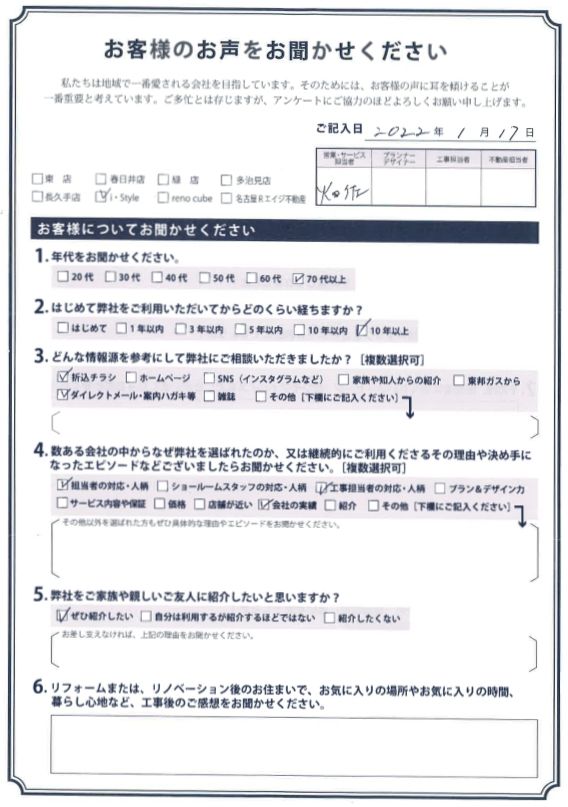 お客様のお声をお聞かせください
私たちは地域で一番愛される会社を目指しています。そのためには、お客様の声に耳を傾けることが
一番重要と考えています。ご多忙とは存じますが、アンケートにご協力のほどよろしくお願い申し上げます。
ご記入日 2022年 1月 17日
営業・サービス担当者 プランナーデザイナー 工事担当者 不動産担当者
□東 店 □春日井店 □緑 店 □多治見店
□長久手店 ☑i・Style □reno cube □名古屋Rエイジ不動産
お客様についてお聞かせください
1. 年代をお聞かせください。
□20代 □30代 □40代 □50代 □60代 ☑70代以上
2. はじめて弊社をご利用いただいてからどのくらい経ちますか？
□はじめて □1年以内 □3年以内 □5年以内 □10年以内 ☑10年以上
3. どんな情報源を参考にして弊社にご相談いただきましたか？［複数選択可］
☑折込チラシ □ホームページ □SNS（インスタグラムなど） □家族や知人からの紹介 □東邦ガスから
☑ダイレクトメール・案内ハガキ等 □雑誌 □その他［下欄にご記入ください］
4. 数ある会社の中からなぜ弊社を選ばれたのか、又は継続的にご利用くださるその理由や決め手に
なったエピソードなどございましたらお聞かせください。［複数選択可］
☑担当者の対応・人柄 □ショールームスタッフの対応・人柄 ☑工事担当者の対応・人柄 □プラン＆デザイン力
□サービス内容や保証 □価格 □店舗が近い ☑会社の実績 □紹介 □その他［下欄にご記入ください］
その他以外を選ばれた方もぜひ具体的な理由やエピソードをお聞かせください。
5. 弊社をご家族や親しいご友人に紹介したいと思いますか？
☑ぜひ紹介したい □自分は利用するが紹介するほどではない □紹介したくない
お差し支えなければ、上記の理由をお聞かせください。
6. リフォームまたは、リノベーション後のお住まいで、お気に入りの場所やお気に入りの時間、
暮らし心地など、工事後のご感想をお聞かせください。